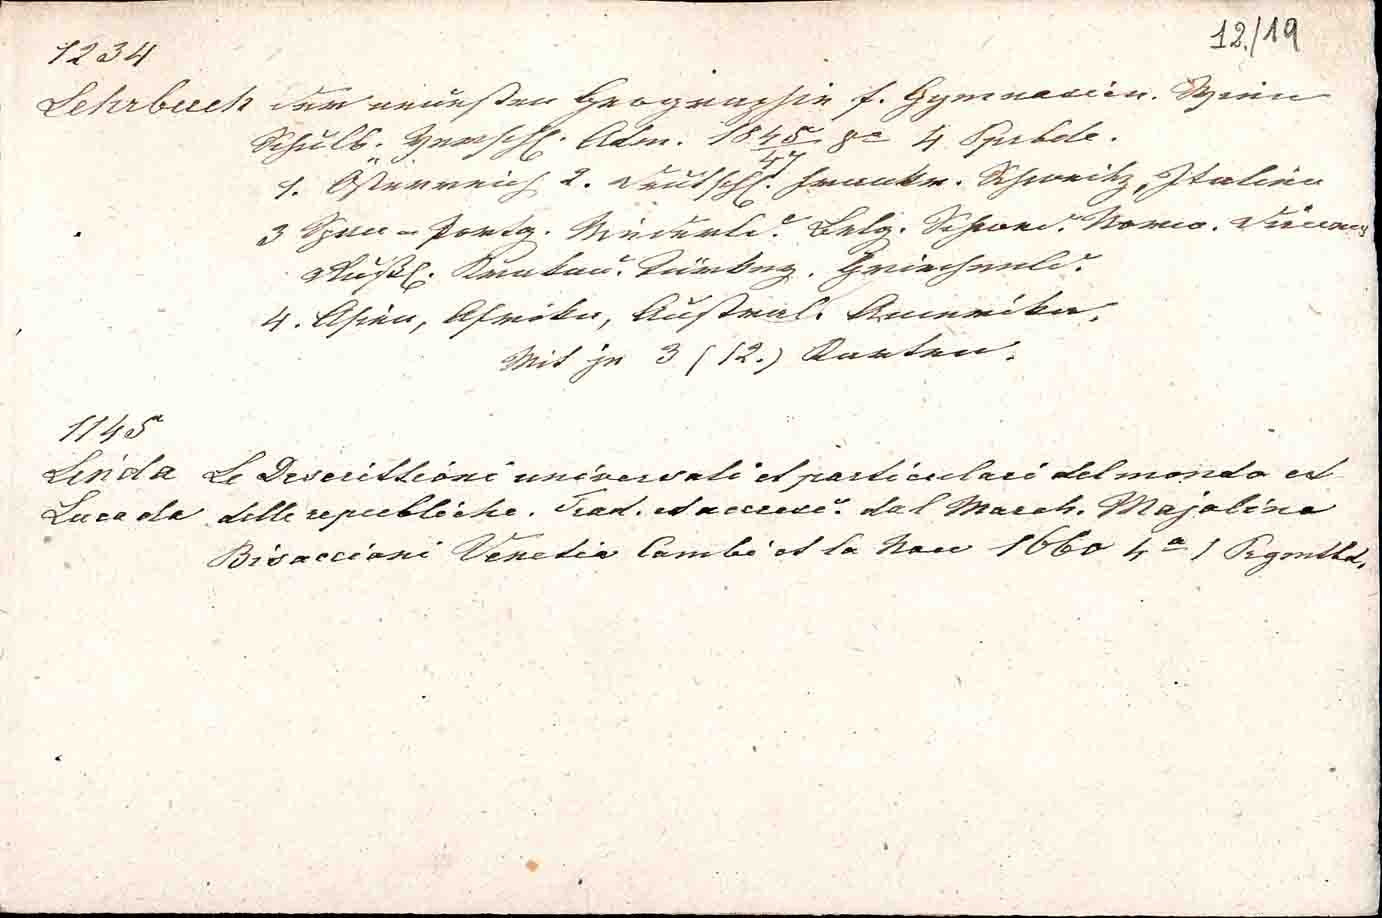 12./19
1234
Lehrbuch der neuesten Geographie f. Gymnasien. Wien
Schulb. Verschl. Adm. 1845/47 8° 4 Ppbde.
1. Österreich 2. Deutschl. Frankr. Schweitz, Italien
3 Span u Portg. Niederld. Belg. Schwed. Norw. Dänem
Rußl. Krakau. Türkey. Griechenld.
4. Asien, Afrika, Austral. Amerika.
Mit je 3 (12.) Karten.
1145
Linda Le Descrittioni universali et particulari del mondo et
Luca da delle republiche. Trad. et accresc. dal March. Majolino
Bisaccioni Venetia Combi et la Nou 1660 4° 1 Pgmtbd.